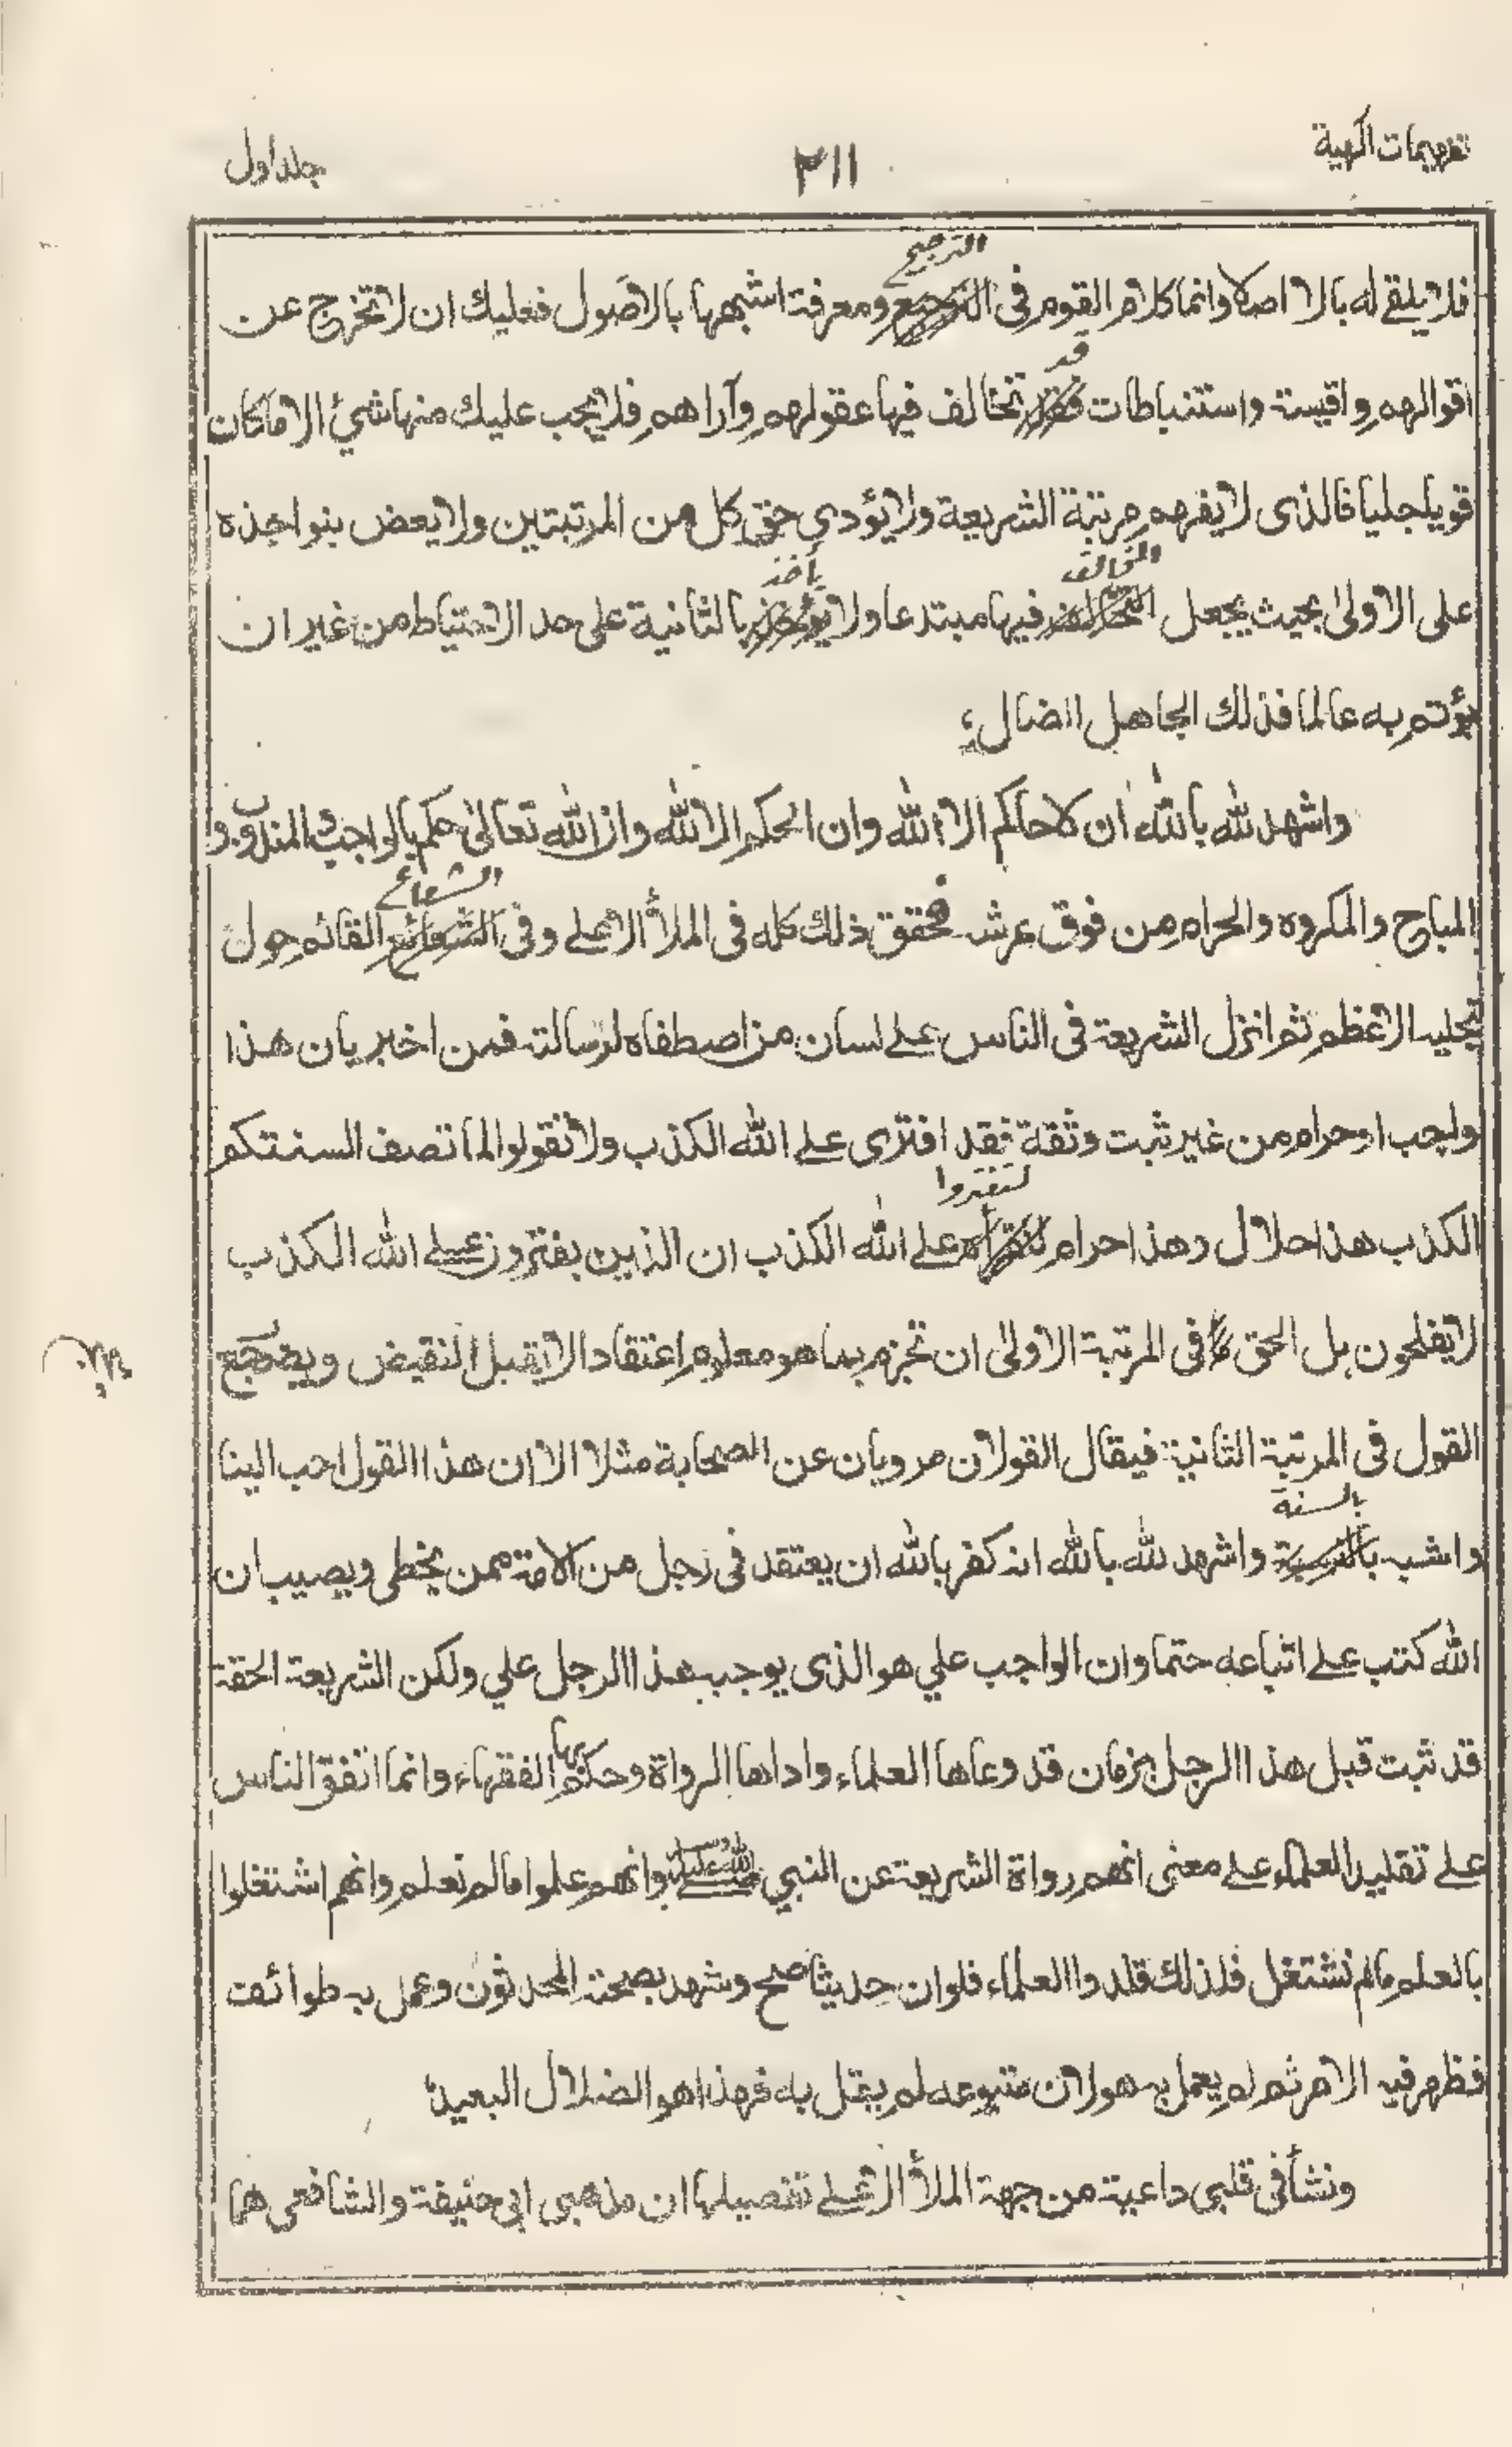 تفهيمات الهية
٢١١
جلد اول
فلا يلقے له بالا اصلا وانما كلام القوم فى الترجيح ومعرفة اشبهها بالاصول فعليك ان لا تخرج عن
اقوالهم واقيسة واستنباطات قد تخالف فيها عقولهم وآراهم فلا يجب عليك منها شيئ الا ما كان
قويا جليا فالذى لا يفهم مرتبة الشريعة ولا يؤدي حق كل من المرتبتين ولا يعض بنواجذه
على الاولىٰ بحيث يجعل المخالف فيها مبتدعا ولا ياخذ بالثانية على حد الاحتياط من غير ان
يؤتم به عالما فذلك الجاهل الضال،
واشهد لله بالله ان لا حاكم الا الله وان الحكم الا لله وان الله تعالىٰ حكم بالواجب والمندوب و
المباح والمكروه والحرام من فوق عرشه فتحقق ذلك كله فى الملأ الاعلے وفى الشفائع القائم حول
تجليه الاعظم ثم انزل الشريعة فى الناس علے لسان من اصطفاه لرسالته فمن اخبر بان هذا
واجب او حرام من غير ثبت وثقة فقد افترى علے الله الكذب ولا تقولوا لما تصف السنتكم
الكذب هذا حلال وهذا حرام لتفتروا علے الله الكذب ان الذين يفترون علے الله الكذب
لا يفلحون بل الحق فى المرتبة الاولىٰ ان تجزم بما هو معلوم اعتقادا لا يقبل النقيض ويصحح
القول فى المرتبة الثانية فيقال القولان مرويان عن الصحابة مثلا الا ان هذا القول احب الينا
واشبه بالسنة واشهد لله بالله انه كفر بالله ان يعتقد فى رجل من الامة ممن يخطى ويصيب ان
الله كتب علے اتباعه حتما وان الواجب علي هو الذى يوجب هذا الرجل علي ولكن الشريعة الحقة
قد ثبت قبل هذا الرجل بزمان قد وعاها العلماء واداها الرواة وحكم بها الفقهاء وانما اتفق الناس
علے تقليد العلماء علے معنى انهم رواة الشريعة عن النبي صلے الله عليه وسلم وانهم علموا مالم نعلم وانهم اشتغلوا
بالعلم مالم نشتغل فلذلك قلدوا العلماء فلو ان حديثا صح وشهد بصحته المحدثون وعمل به طوائف
فظهر فيه الامر ثم لم يعمل به هو لان متبوعه لم يقل به فهذا هو الضلال البعيد؛
ونشأ فى قلبى داعية من جهة الملأ الاعلے تفصيلها ان مذهبى ابى حنيفة والشافعى هما